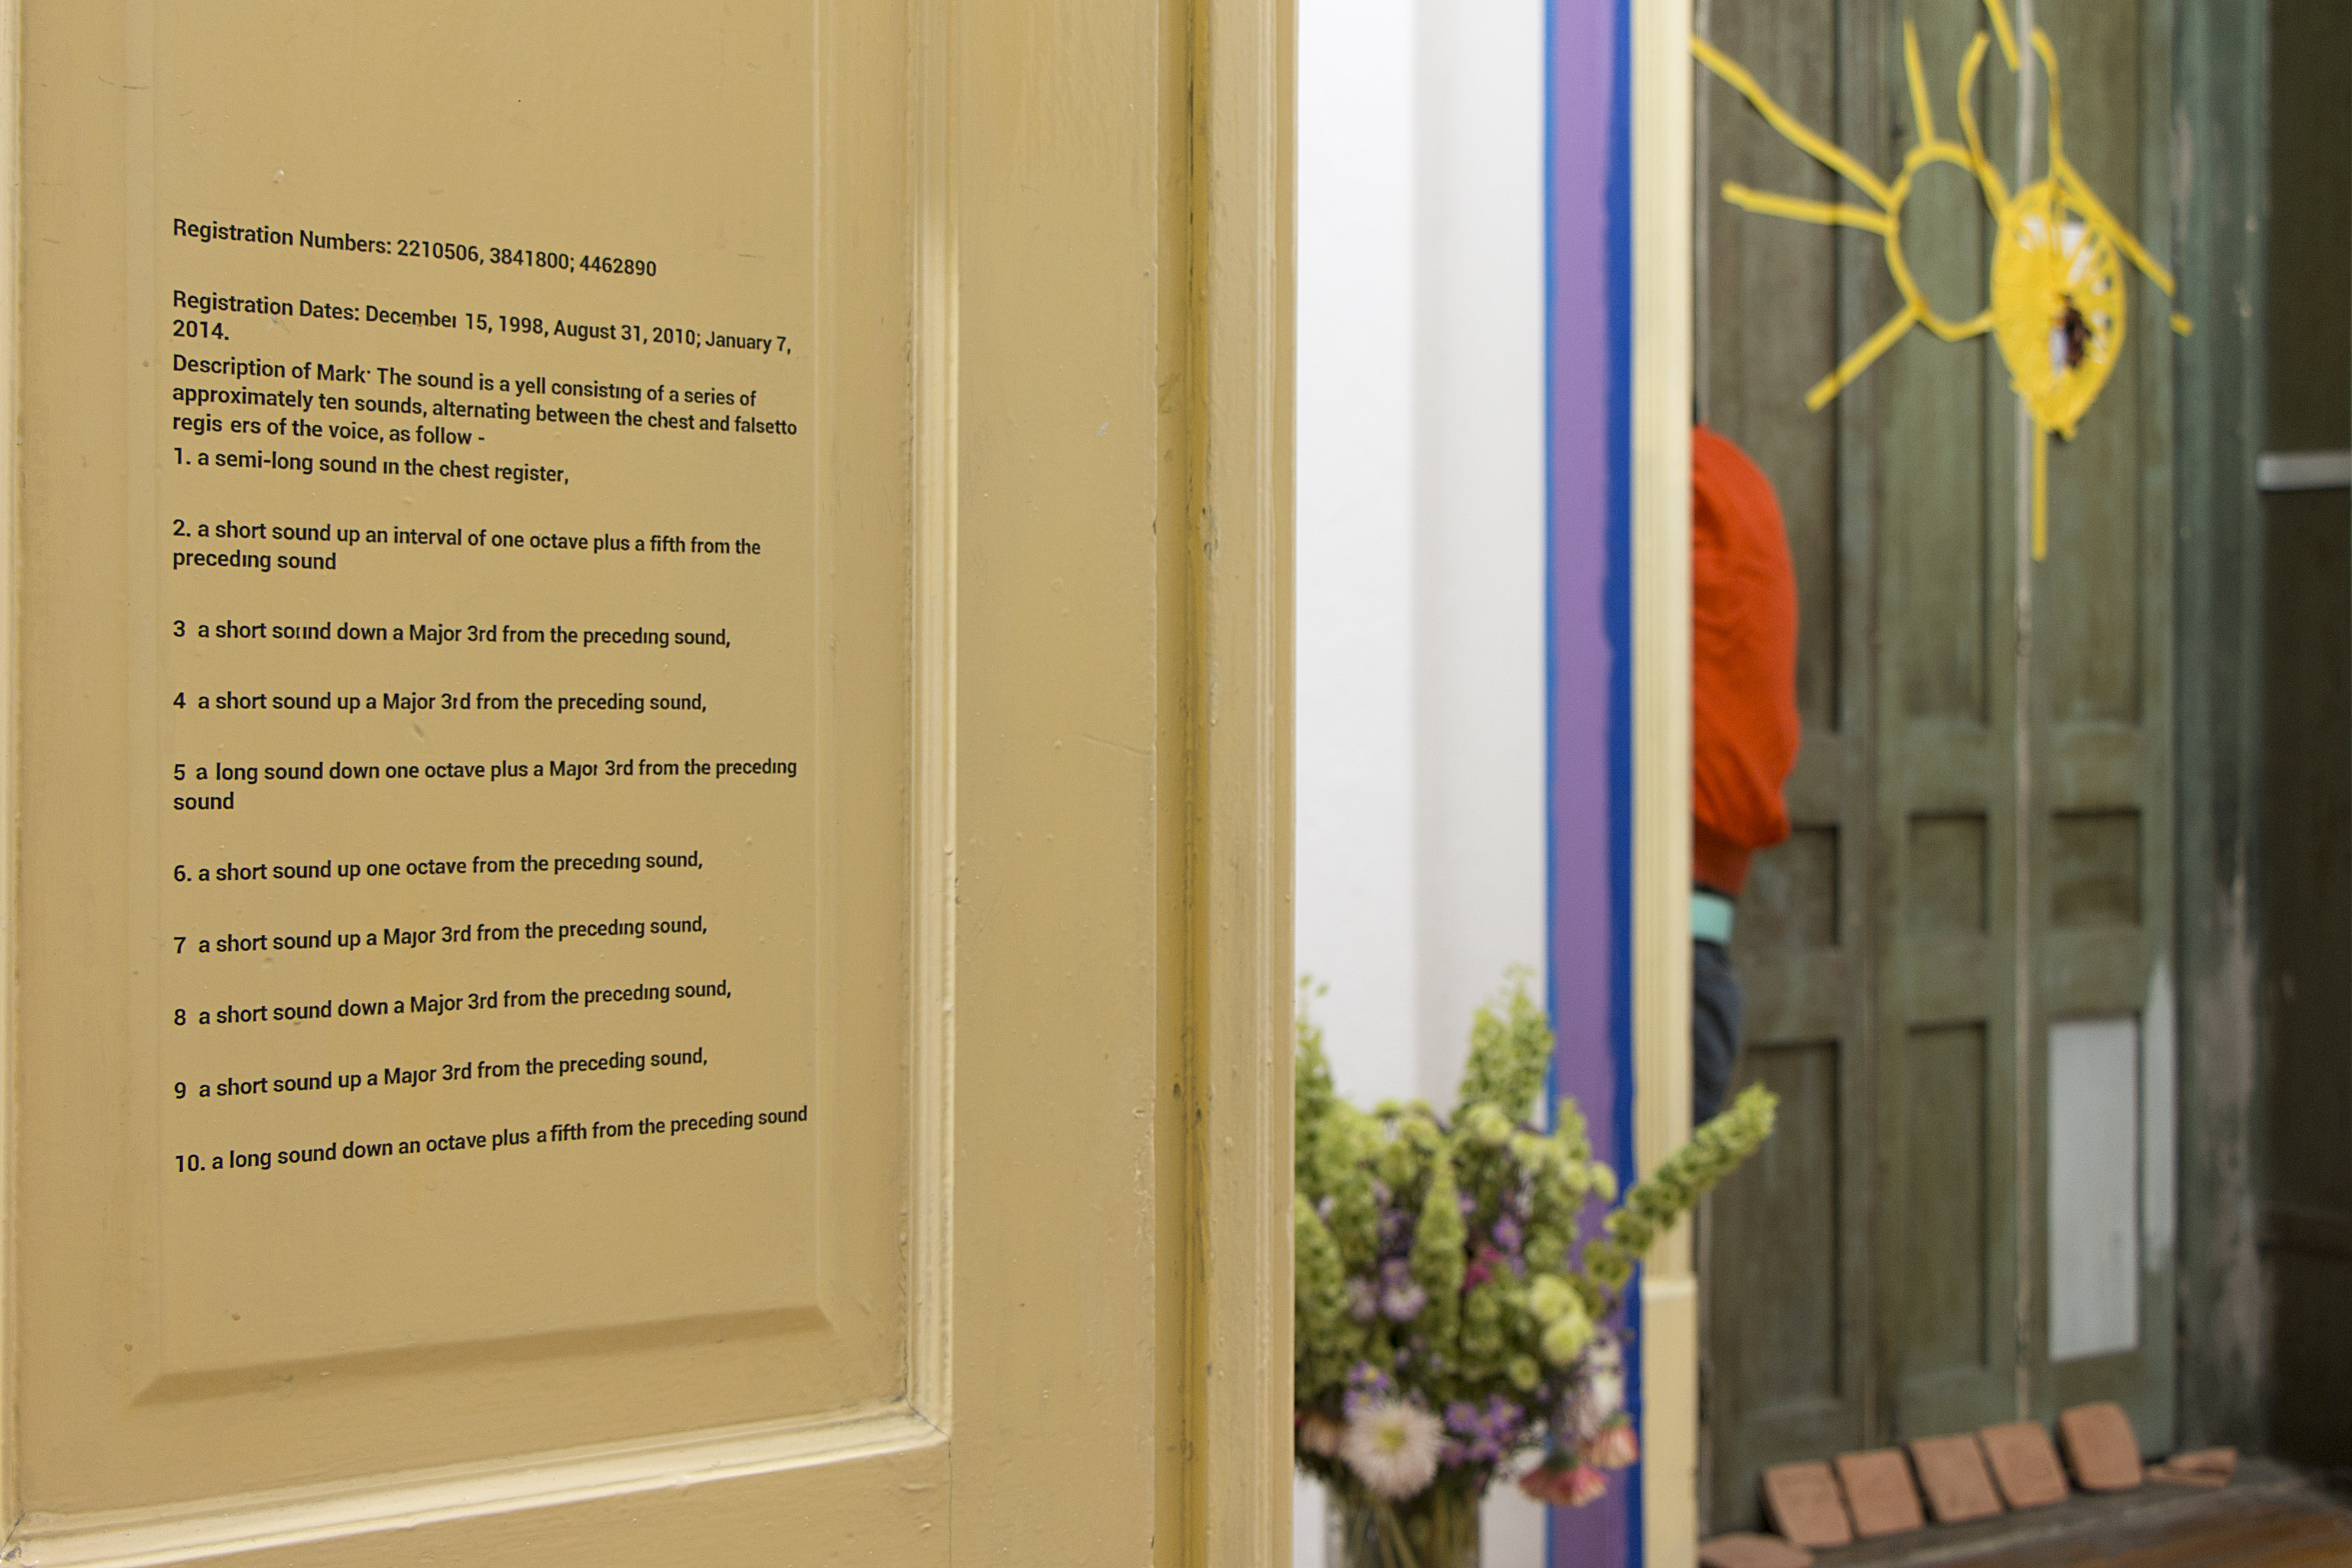 Registration Numbers: 2210506, 3841800; 4462890
Registration Dates: December 15, 1998, August 31, 2010; January 7,
2014.
Description of Mark· The sound is a yell consisting of a series of
approximately ten sounds, alternating between the chest and falsetto
regis ers of the voice, as follow -
1. a semi-long sound in the chest register,
2. a short sound up an interval of one octave plus a fifth from the
preceding sound
3 a short sound down a Major 3rd from the preceding sound,
4 a short sound up a Major 3rd from the preceding sound,
5 a long sound down one octave plus a Major 3rd from the preceding
sound
6. a short sound up one octave from the preceding sound,
7 a short sound up a Major 3rd from the preceding sound,
8 a short sound down a Major 3rd from the preceding sound,
9 a short sound up a Major 3rd from the preceding sound,
10. a long sound down an octave plus a fifth from the preceding sound